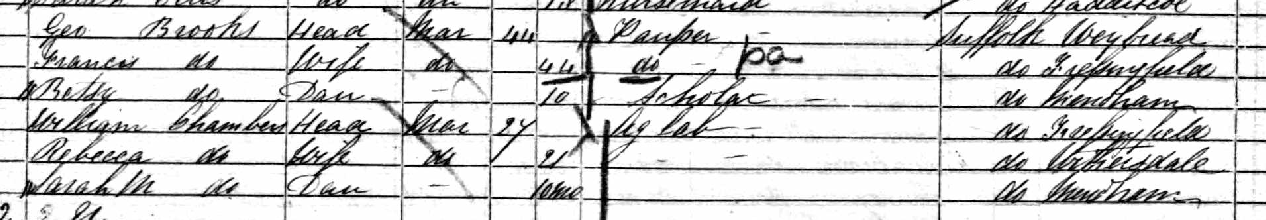 do Nursemaid do Haddiscoe
Geo Brooks Head Mar 44 Pauper - Suffolk Weybread
Francis do Wife do 44 do - pa do Fressingfield
Betsy do Dau - 10 Scholar - do Mendham
William Chambers Head Mar 27 Ag lab - do Fressingfield
Rebecca do Wife do 21 - do Withersdale
Sarah M do Dau - 10mo do Mendham